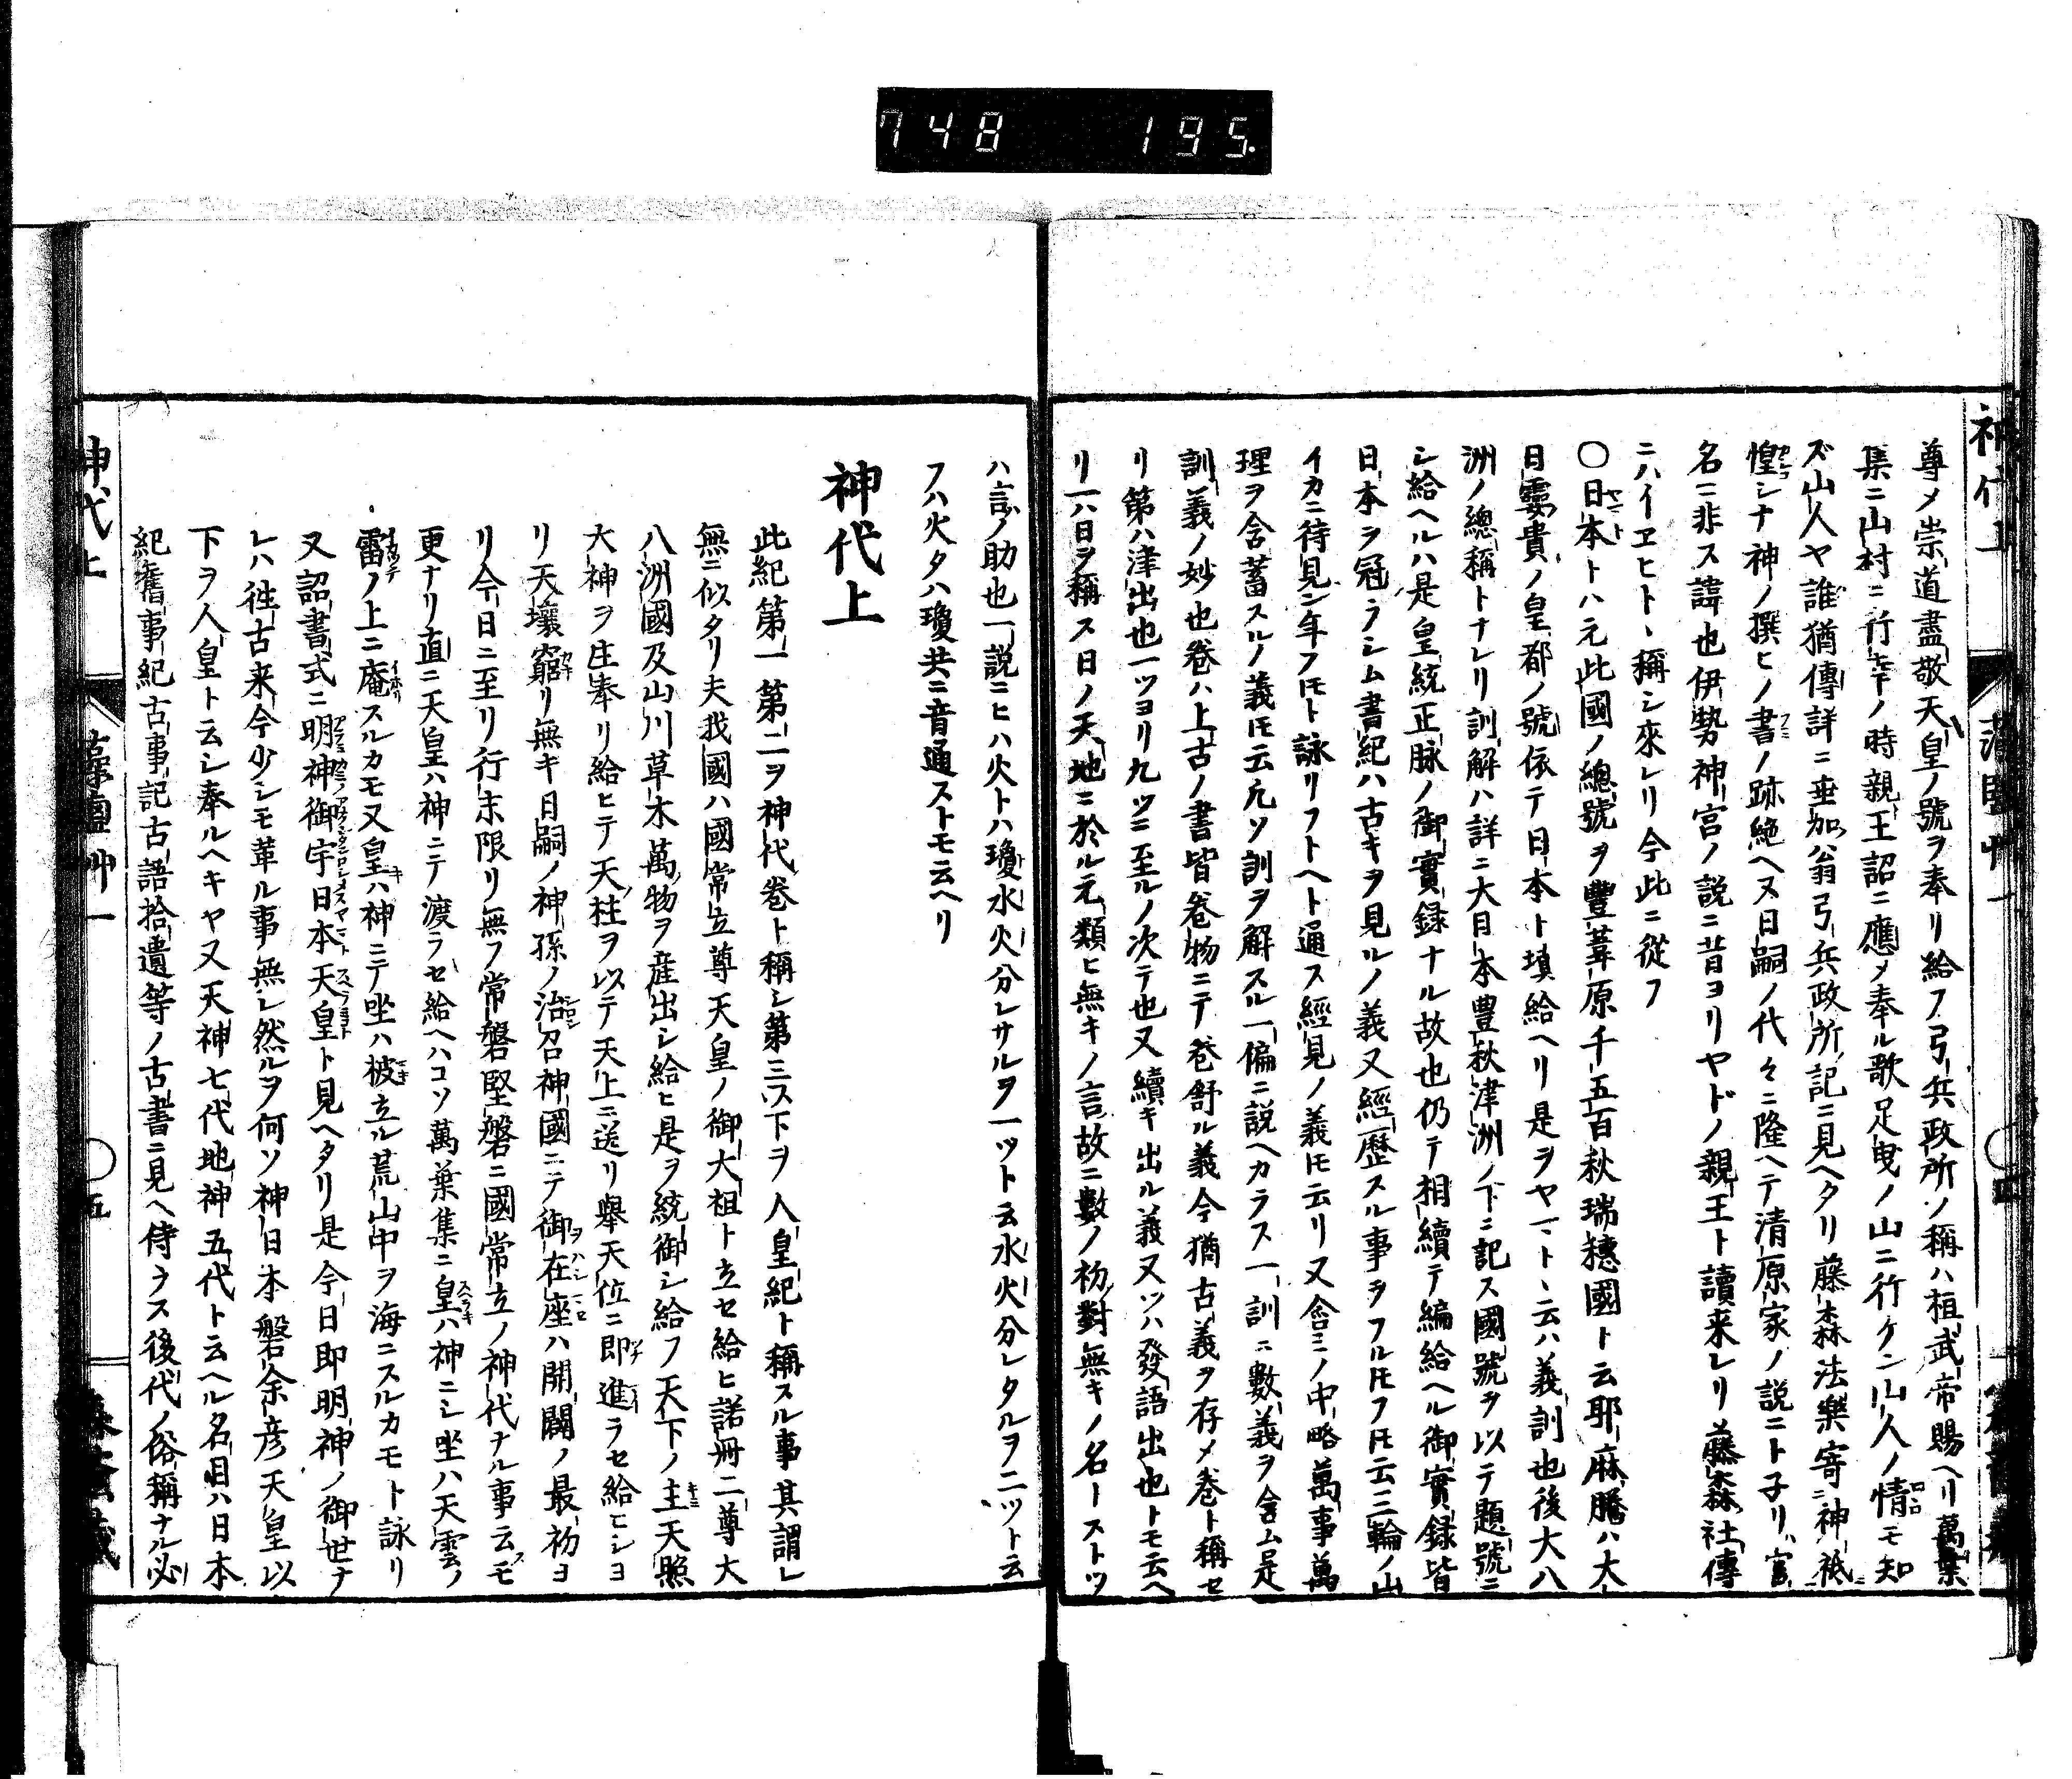 748 195.
神代上
尊メ崇道盡敬天皇ノ號ヲ奉リ給フ弓兵政所ノ稱ハ桓武帝賜ヘリ萬葉
集ニ山村ニ行幸ノ時親王詔ニ應メ奉ル歌足曳ノ山ニ行ケン山人ノ情モ知
ズ山人ヤ誰猶傳詳ニ垂加翁弓兵政所記ニ見ヘタリ藤森法樂寄神祇
惶シナ神ノ撰ヒノ書ノ跡絶ヘヌ日嗣ノ代々ニ隆ヘテ清原家ノ說ニト子リ官
名ニ非ス諱也伊勢神宮ノ說ニ昔ヨリヤドノ親王ト讀來レリ藤森社傳
ニハイヱヒトヽ稱シ來レリ今此ニ從フ
〇日本トハ元此國ノ總號ヲ豐葦原千五百秋瑞穗國ト云耶麻騰ハ大
日孁貴ノ皇都ノ號依テ日本ト填給ヘリ是ヲヤマトヽ云ハ義訓也後大八
洲ノ總稱トナレリ訓解ハ詳ニ大日本豊秋津洲ノ下ニ記ス國號ヲ以テ題號ニ
シ給ヘルハ是皇統正脉ノ御實録ナル故也仍テ相續テ編給ヘル御實録皆
日本ヲ冠ラシム書紀ハ古キヲ見ルノ義又經歷スル事ヲフルㇳモフㇳモ云三輪ノ山
イカニ待見ン年フㇳモト詠リフトヘト通ス經見ノ義ㇳモ云リ又含ミノ中略萬事萬
理ヲ含蓄スルノ義ㇳモ云凡ソ訓ヲ解スル一偏ニ說ヘカラス一訓ニ數義ヲ含ム是
訓義ノ妙也卷ハ上古ノ書皆卷物ニテ卷舒ル義今猶古義ヲ存メ卷ト稱セ
リ第ハ津出也一ツヨリ九ツニ至ルノ次テ也又續キ出ル義又ツハ發語出也トモ云ヘ
リ一ハ日ヲ稱ス日ノ天地ニ於ル元類ヒ無キノ言故ニ數ノ初對無キノ名一ストツ
ハ言ノ助也一說ニヒハ火トハ瓊水火分レサルヲ一ツト云水火分レタルヲ二ツト云
フハ火タハ瓊共ニ音通ストモ云ヘリ
神代上
此紀第一第二ヲ神代卷ト稱シ第三ス下ヲ人皇紀ト稱スル事其謂レ
無ニ似タリ夫我國ハ國常立尊天皇ノ御大祖ト立セ給ヒ諾冊二尊大
八洲國及山川草木萬物ヲ産出シ給ヒ是ヲ統御シ給フ天下ノ主天照
大神ヲ庄奉リ給ヒテ天柱ヲ以テ天上ニ送リ擧天位ニ即進ラセ給ヒシヨ
リ天壤窮リ無キ日嗣ノ神孫ノ治召神國ニテ御在座ハ開闢ノ最初ヨ
リ今日ニ至リ行末限リ無フ常磐堅磐ニ國常立ノ神代ナル事云モ
更ナリ直ニ天皇ハ神ニテ渡ラセ給ヘハコソ萬葉集ニ皇ハ神ニシ坐ハ天雲ノ
雷ノ上ニ庵スルカモ又皇ハ神ニテ坐ハ被立ル荒山中ヲ海ニスルカモト詠リ
又詔書式ニ明神御宇日本天皇ト見ヘタリ是今日即明神ノ御世ナ
レハ徃古来今少シモ革ル事無レ然ルヲ何ソ神日本磐余彦天皇以
下ヲ人皇ト云シ奉ルヘキヤ又天神七代地神五代ト云ヘル名目ハ日本
紀舊事紀古事記古語拾遺等ノ古書ニ見ヘ侍ラス後代ノ俗稱ナル必
神代上
藻鹽艸一
五